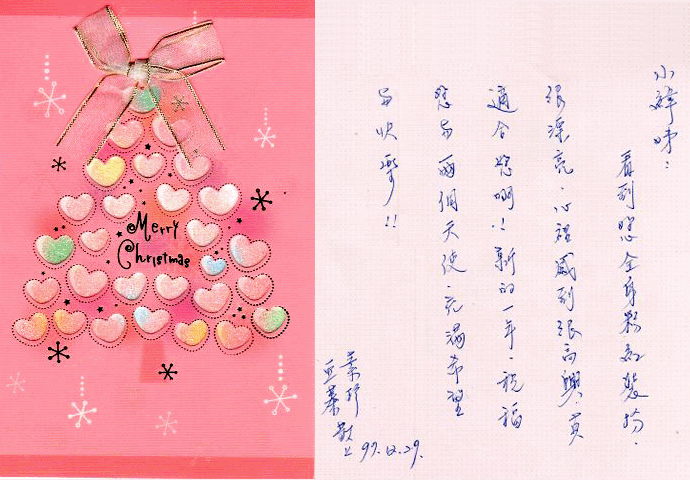 Merry
Christmas
小婷咪：
看到您全身粉紅裝扮，
很漂亮，心裡感到很高興，真
適合您啊！！新的一年，祝福
您與兩個天使，充滿希望
與快樂！！
敬上
97.12.29.